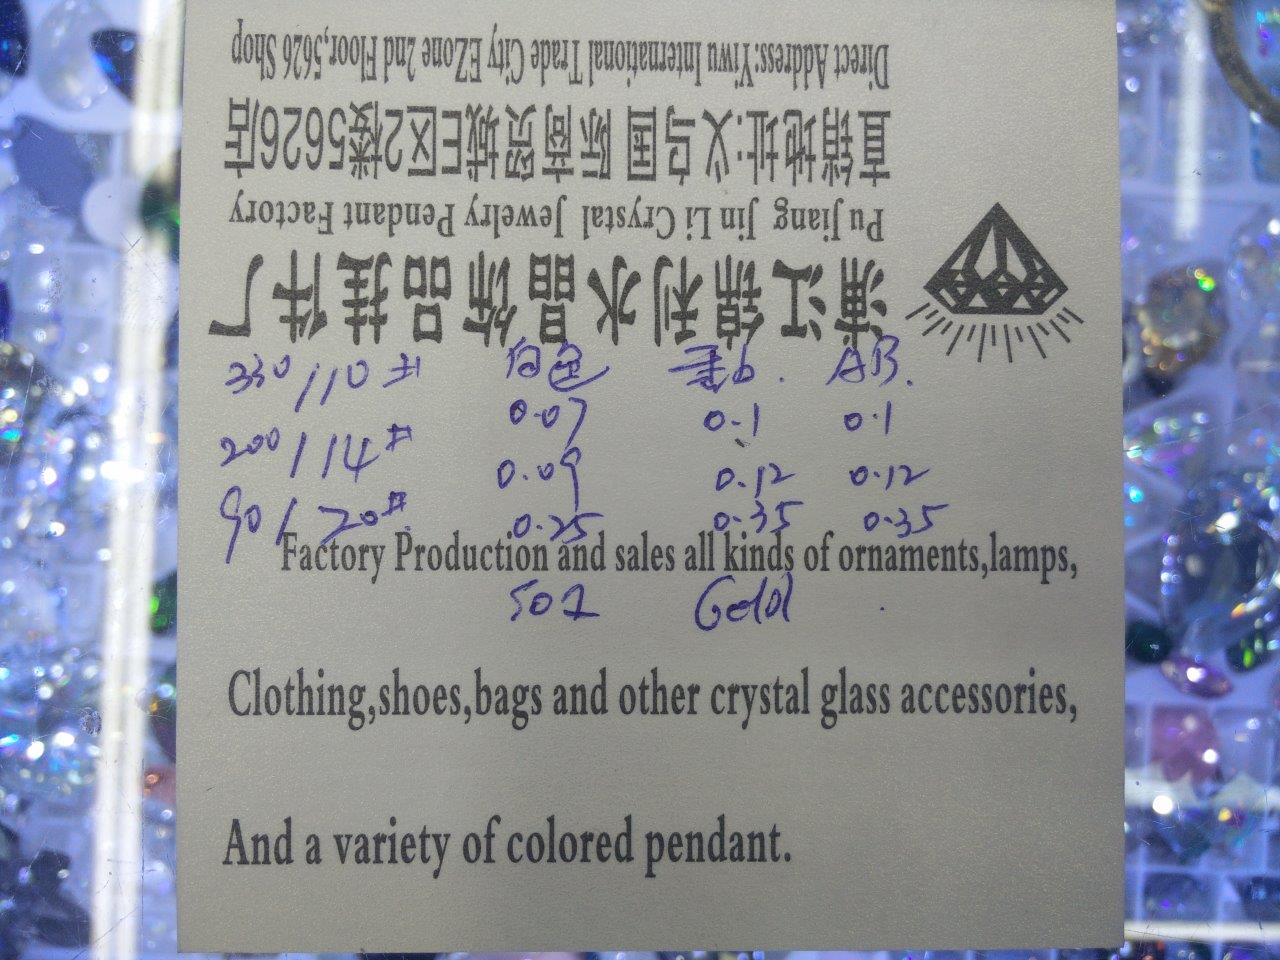 Direct Address:Yiwu International Trade City EZone 2nd Floor,5626 Shop
直销地址:义乌国际商贸城E区2楼5626店
Pu Jiang Jin Li Crystal Jewelry Pendant Factory
浦江锦利水晶饰品挂件厂
330/10# 白色 AB.
0.07 0.1 0.1
200/14# 0.09 0.12 0.12
90/20# 0.25 0.35 0.35
Factory Production and sales all kinds of ornaments,lamps,
Gold
Clothing,shoes,bags and other crystal glass accessories,
And a variety of colored pendant.